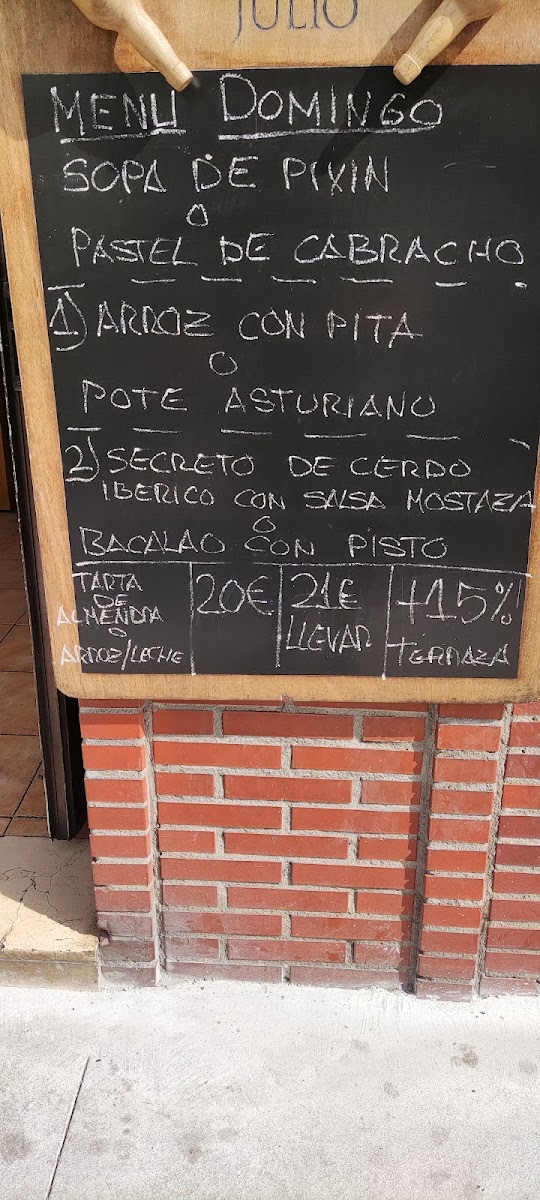 JULIO
MENU DOMINGO
SOPA DE PIXIN
O
PASTEL DE CABRACHO
1) ARROZ CON PITA
O
POTE ASTURIANO
2) SECRETO DE CERDO
IBERICO CON SALSA MOSTAZA
O
BACALAO CON PISTO
TARTA
DE
ALMENDRA
O
ARROZ/LECHE
20€
21€
LLEVAR
+15%
TERRAZA